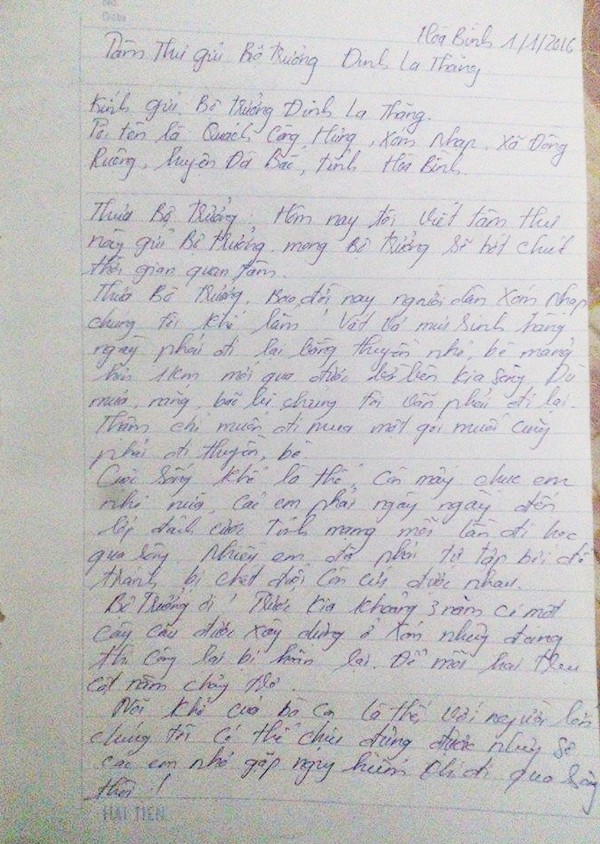 Hoà Bình 1/1/2016
Tâm Thư gửi Bộ Trưởng Đinh La Thăng
Kính gửi Bộ Trưởng Đinh La Thăng.
Tôi tên là Quách Công Hùng, Xóm Nhạp, Xã Đồng
Ruộng, huyện Đà Bắc, tỉnh Hoà Bình.
Thưa Bộ Trưởng: Hôm nay tôi viết tâm thư
này gửi Bộ Trưởng mong Bộ Trưởng sẽ bớt chút
thời gian quan tâm.
Thưa Bộ Trưởng, Bao đời nay người dân Xóm Nhạp
chúng tôi khổ lắm! Vất vả mưu sinh hằng
ngày phải đi lại bằng thuyền nhỏ, bè mảng
hơn 1km mới qua được bờ bên kia sông. Dù
mưa, nắng, bão lũ, chúng tôi vẫn phải đi lại.
Thậm chí muốn đi mua một gói muối cũng
phải đi thuyền, bè.
Cuộc sống khổ là thế, còn mấy chục em
nhỏ nữa, các em phải ngày ngày đến
lớp đánh cược tính mạng mỗi lần đi học
qua sông. Nhiều em đã phải tự tập bơi để
tránh bị chết đuối còn cứu được nhau.
Bộ Trưởng ơi! Trước kia khoảng 3 năm có một
cây cầu được xây dựng ở Xóm nhưng đang
thi công lại bị hoãn lại. Để mỗi hai
cột nằm chỏng
Nỗi khổ của bà con là thế với người lớn
chúng tôi có thể chịu đựng được nhưng sợ
các em nhỏ gặp nguy hiểm khi đi qua sông
thôi!
HẢI TIẾN